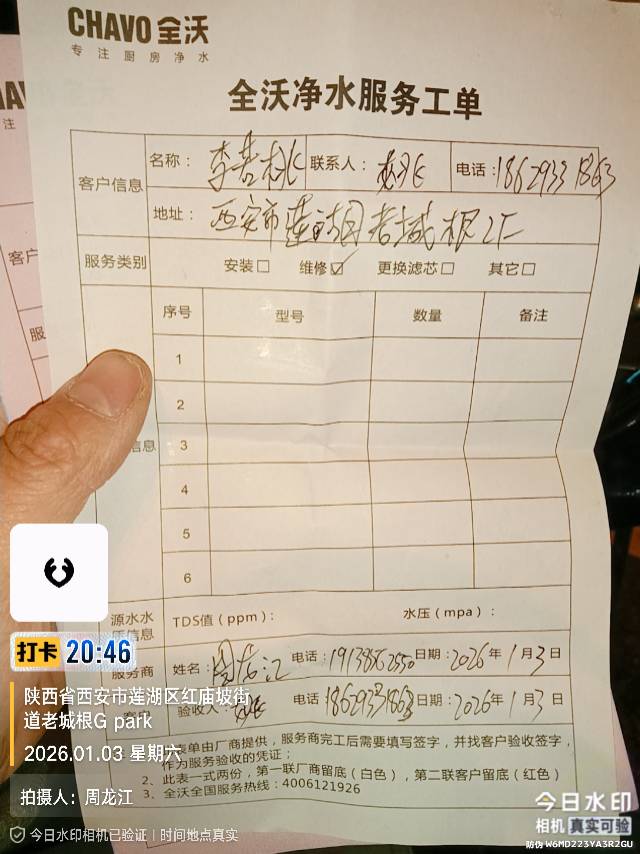 CHAVO 全沃
专注厨房净水
全沃净水服务工单
客户信息
名称： 李若桃 联系人： 电话：18629331863
地址： 西安市莲湖区老城根
服务类别 安装□ 维修☑ 更换滤芯□ 其它□
序号 型号 数量 备注
1
2
3
4
5
6
信息
源水水
质信息
TDS值（ppm）： 水压（mpa）：
服务商 姓名：周龙江 电话： 日期：2026年1月3日
验收人： 电话 18629331863 日期：2026年1月3日
表单由厂商提供，服务商完工后需要填写签字，并找客户验收签字，
作为服务验收的凭证；
2、此表一式两份，第一联厂商留底（白色），第二联客户留底（红色）
3、全沃全国服务热线：4006121926
打卡 20:46
陕西省西安市莲湖区红庙坡街
道老城根G park
2026.01.03 星期六
拍摄人：周龙江
今日水印相机已验证 | 时间地点真实
今日水印
相机 真实可验
防伪 W6MD223YA3R2GU